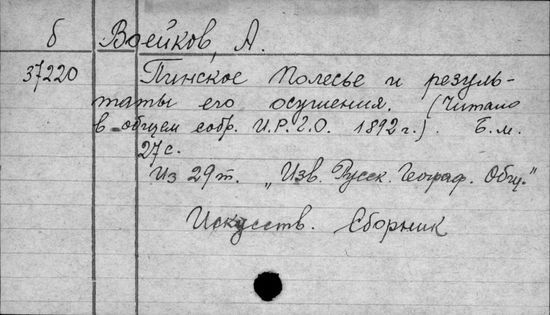 б Воейков, А.
37220 Пинское Полесье и резуль-
таты его осушения. (Читано
в общем собр. И.Р.Г.О. 1892 г.). Б.м.
27 с.
Из 29 т. „Изв. Русск. Географ. Общ."
Искусств. Сборник